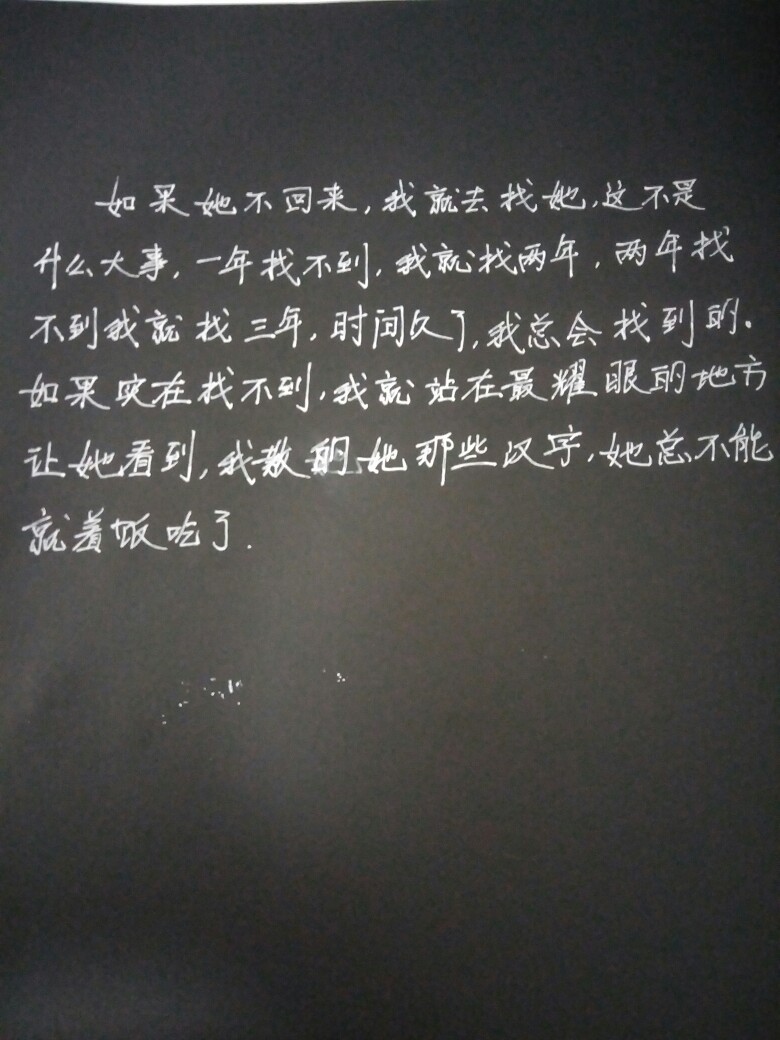 如果她不回来,我就去找她,这不是
什么大事,一年找不到,我就找两年,两年找
不到我就找三年,时间久了,我总会找到的。
如果实在找不到,我就站在最耀眼的地方
让她看到,我教的她那些汉字,她总不能
就着饭吃了.